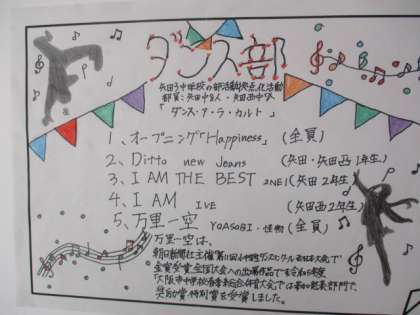 ダンス部
矢田3中学校の部活動拠点化活動
部員:矢田中8人・矢田西中
「ダンス・ア・ラ・カルト」
1、オープニング「Happiness」(全員)
2、Ditto new Jeans (矢田・矢田西1年生)
3、I AM THE BEST 2NE1 (矢田2年生)
4、I AM IVE (矢田西2年生)
5、万里一空 YOASOBI・怪物 (全員)
万里一空は、
朝日新聞社主催 第11回 西日本大会で
金賞受賞 全国大会への出場作品です
「大阪市中学校春季総合体育大会」では 部門で、
奨励賞 特別賞を受賞しました。